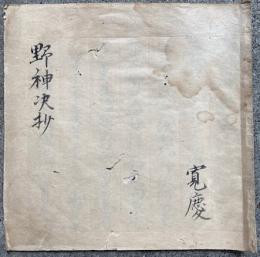 野神决抄
寛慶